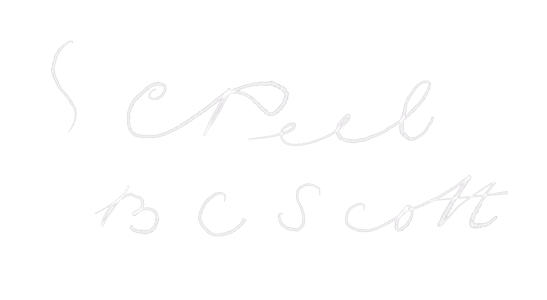 S C Peel
B C S Scott